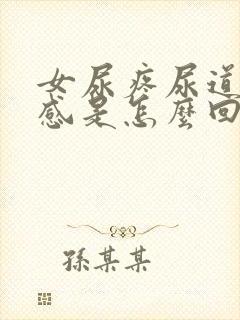 女尿疼尿道
感是怎麼回
孫某某